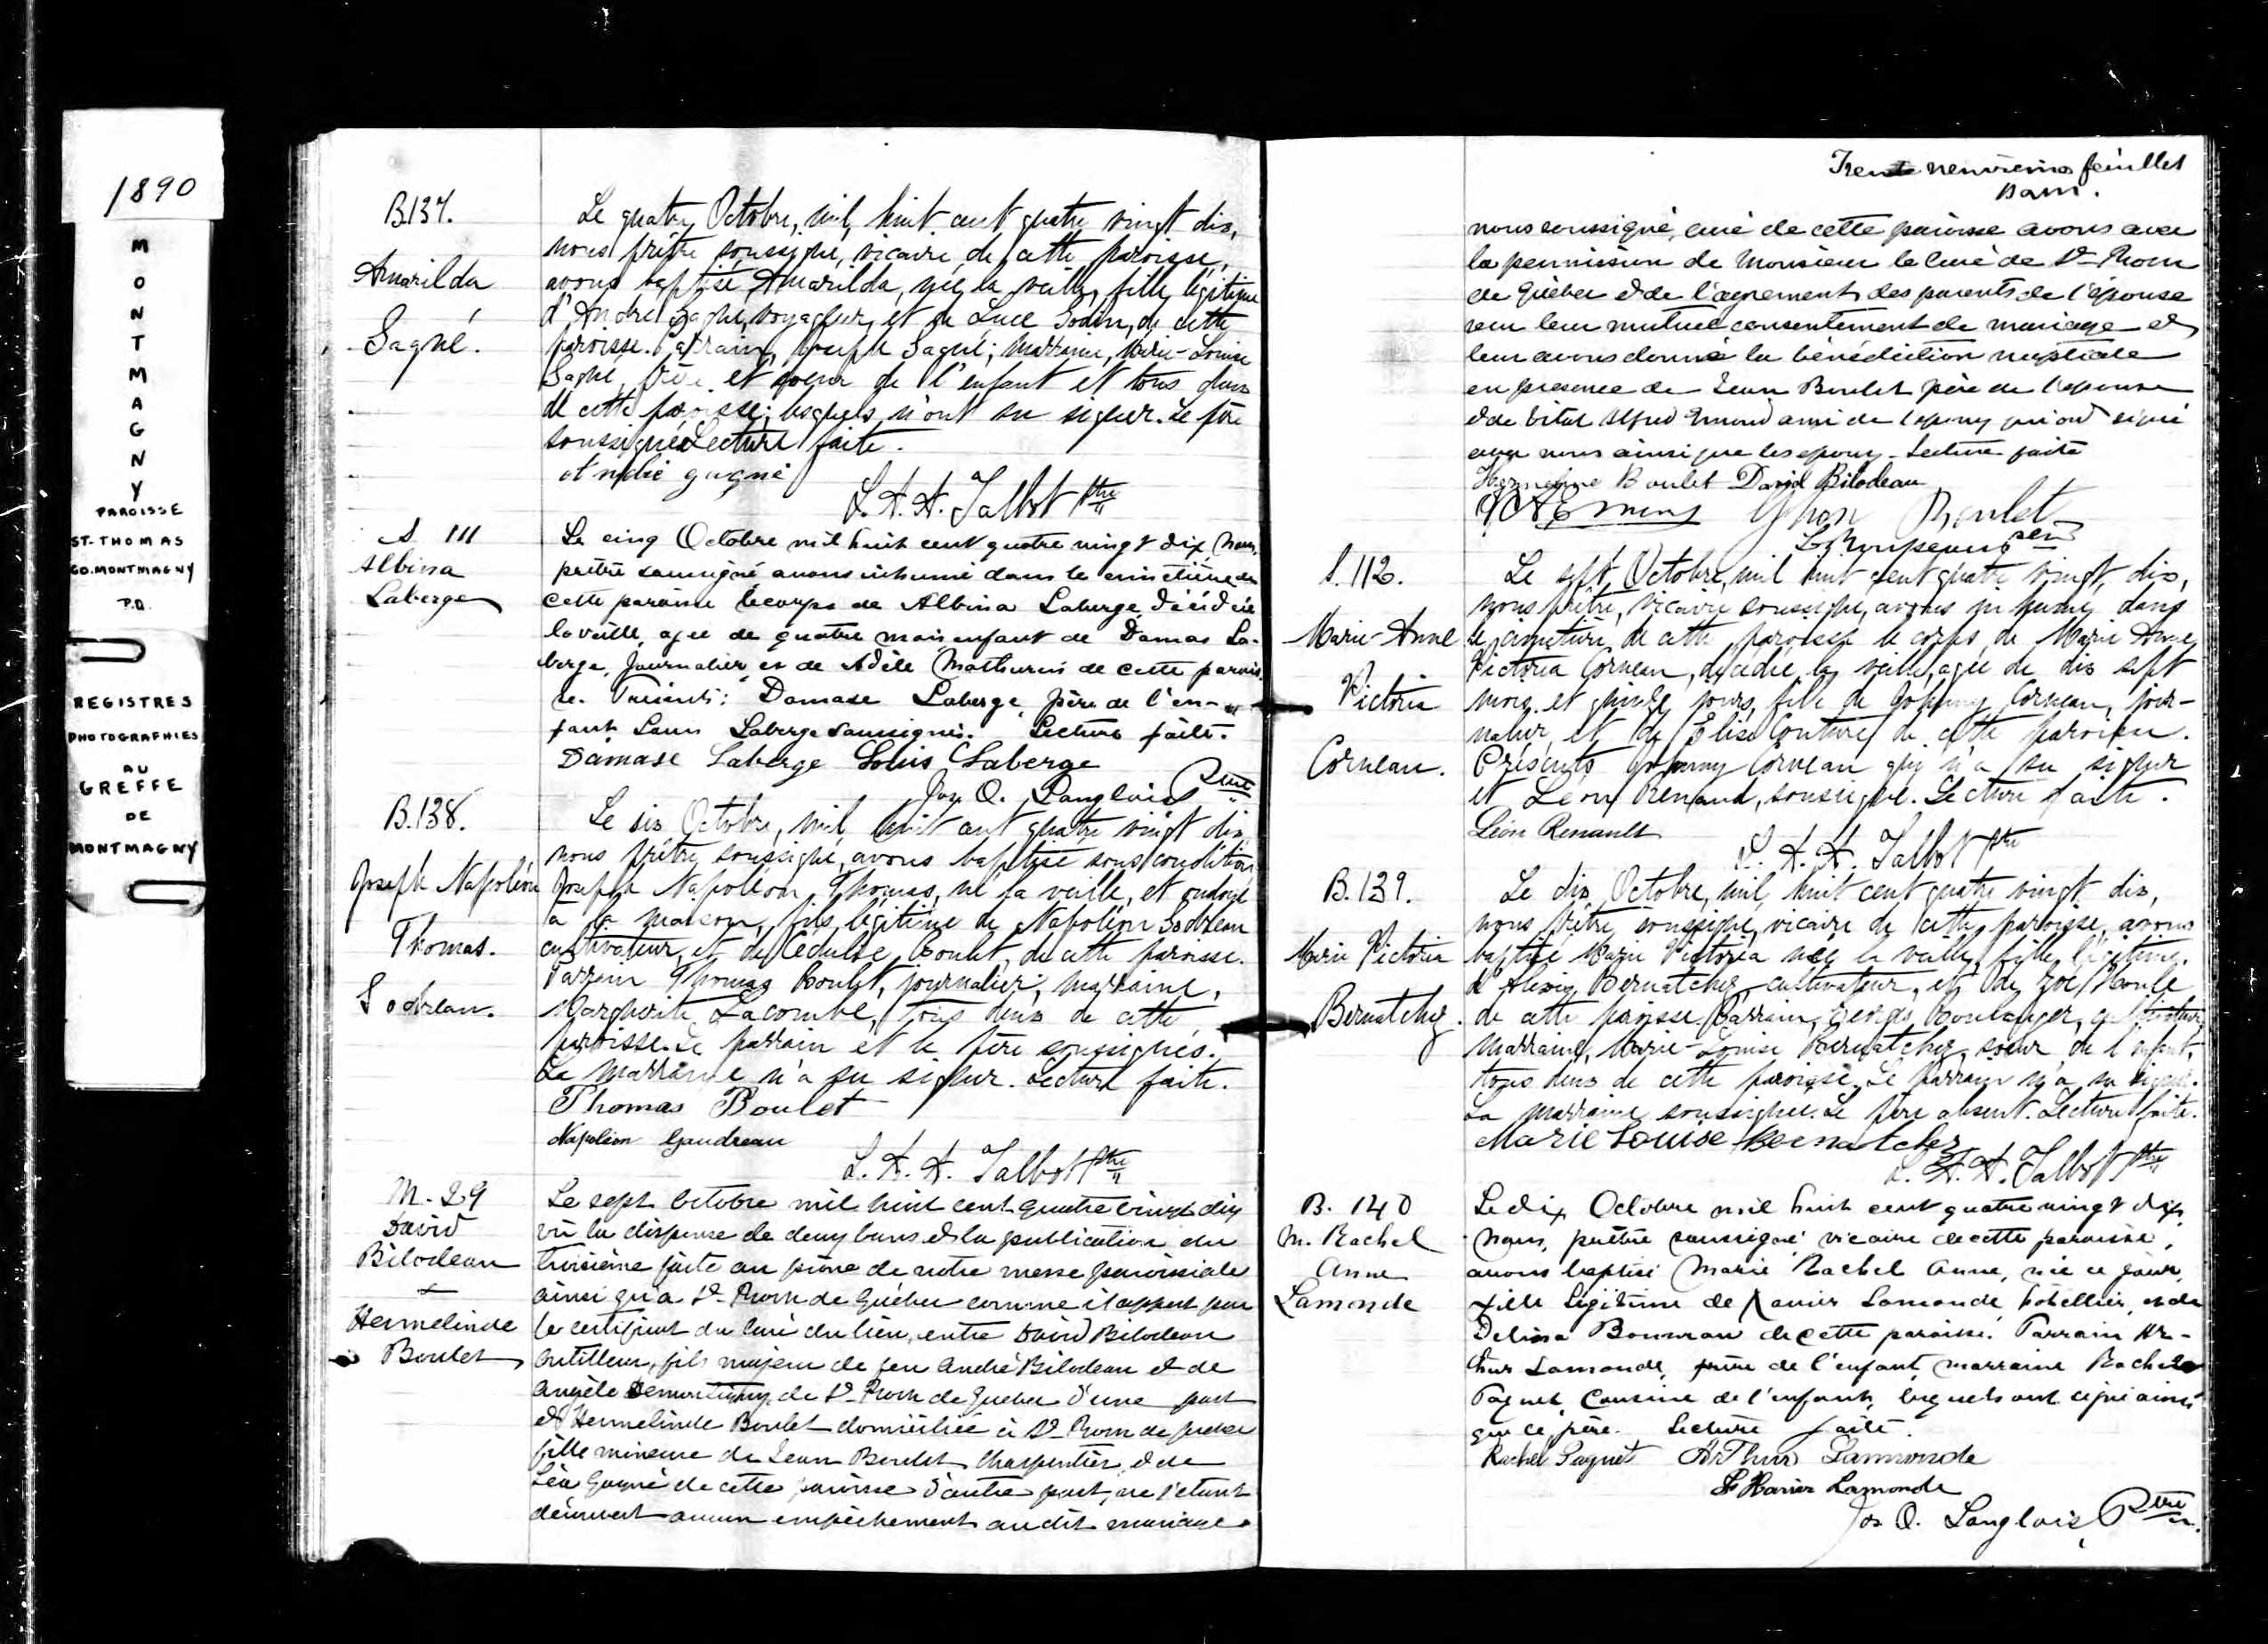 1890
MONTMAGNY
PAROISSE
ST-THOMAS
CO. MONTMAGNY
P.Q.
REGISTRES
PHOTOGRAPHIES
AU
GREFFE
DE
MONTMAGNY
B.137.
Amarilda
Gagné.
Le quatre Octobre, mil huit cent quatre vingt dix,
nous prêtre soussigné, vicaire de cette paroisse,
avons baptisé Amarilda, née la veille, fille légitime
d'André Gagné, voyageur, et de Luce Godin, de cette
paroisse. Parrain, Joseph Gagné; marraine, Marie-Louise
Gagné, frère et soeur de l'enfant et tous deux
de cette paroisse; lesquels n'ont su signer. Le père
soussigné. Lecture faite.
andré gagné
L. A. A. Talbot Ptre
S 111
Albina
Laberge
Le cinq Octobre mil huit cent quatre vingt dix Nous,
prêtre soussigné avons inhumé dans le cimetière de
cette paroisse le corps de Albina Laberge décédée
la veille, agée de quatre mois enfant de Damas La-
berge, Journalier et de Adèle Mathurin de cette parois-
se. Présents: Damase Laberge, père de l'en-
fant Louis Laberge soussignés. Lecture faite.
Damase Laberge Louis Laberge
Jos. O. Langlois Ptre
B.138.
Joseph Napoléon
Thomas.
Godreau.
Le six Octobre, mil huit cent quatre vingt dix,
nous prêtre soussigné, avons baptisé sous condition
Joseph Napoléon Thomas, né la veille, et ondoyé
à la maison, fils légitime de Napoléon Godreau
cultivateur, et de Cédulie Boulet, de cette paroisse.
Parrain Thomas Boulet, journalier, marraine,
Marguerite Lacombe, tous deux de cette
paroisse. Le parrain et le père soussignés.
La marraine n'a su signer. Lecture faite.
Thomas Boulet
Napoléon Gaudreau
L. A. A. Talbot Ptre
M. 29
David
Bilodeau
&
Hermelinde
Boulet
Le sept Octobre mil huit cent quatre vingt dix
vu la dispense de deux bans & la publication du
troisième faite au prône de notre messe paroissiale
ainsi qu'à St-Roch de Québec comme il appert par
le certificat du Curé du lieu, entre David Bilodeau
fils majeur de feu André Bilodeau & de
Angèle de St-Roch de Quebec d'une part
& Hermelinde Boulet domiciliée à St-Roch de Quebec
fille mineure de Jean Boulet Charpentier & de
Léa Gagné de cette paroisse d'autre part, ne s'étant
découvert aucun empêchement au dit mariage
Trente neuvième feuillet
nous soussigné, curé de cette paroisse avons avec
la permission de Monsieur le Curé de St-Roch
de Québec & de l'agrement des parents de l'épouse
recu leur mutuel consentement de mariage et
leur avons donné la bénédiction nuptiale
en presence de Jean Boulet père de l'épouse
& de Vital Alfred Emond ami de l'epoux qui ont signé
avec nous ainsi que les epoux. Lecture faite
Hermeline Boulet David Bilodeau
V A Emond Jean Boulet
S. 112.
Marie-Anne
Victoria
Corneau.
Le sept Octobre, mil huit cent quatre vingt dix,
nous prêtre, vicaire soussigné, avons inhumé dans
le cimetière de cette paroisse le corps de Marie Anne
Victoria Corneau, décédée la veille, agée de dix sept
mois et quinze jours, fille de Johnny Corneau, jour-
nalier, et de Elise Couture de cette paroisse.
Présents Johnny Corneau qui n'a su signer
et Léon Renaud, soussigné. Lecture faite.
Léon Renault
L. A. A. Talbot Ptre
B.139.
Marie Victoria
Bernatchez.
Le dix Octobre, mil huit cent quatre vingt dix,
nous prêtre soussigné, vicaire de cette paroisse, avons
baptisé Marie Victoria née la veille, fille légitime
d'Alexis Bernatchez cultivateur, et de Zoé
de cette paroisse. Parrain, Georges Boulanger, cultivateur,
marraine, Marie-Louise Bernatchez, soeur de l'enfant,
tous deux de cette paroisse. Le parrain n'a su signer.
La marraine soussignée. Le père absent. Lecture faite.
Marie Louise Bernatchez
L. A. A. Talbot Ptre
B. 140
M. Rachel
Anne
Lamonde
Le dix Octobre mil huit cent quatre vingt dix,
Nous, prêtre soussigné vicaire de cette paroisse,
avons baptisé Marie Rachel Anne, née ce jour,
fille légitime de Xavier Lamonde, hotellier, et de
Delima de cette paroisse. Parrain Ar-
thur Lamonde, frère de l'enfant, marraine Rachel
Paquet, Cousine de l'enfant, lesquels ont signé ainsi
que le père. Lecture faite.
Rachel Paquet Arthur Lamonde
F Xavier Lamonde
Jos O. Langlois, Ptre